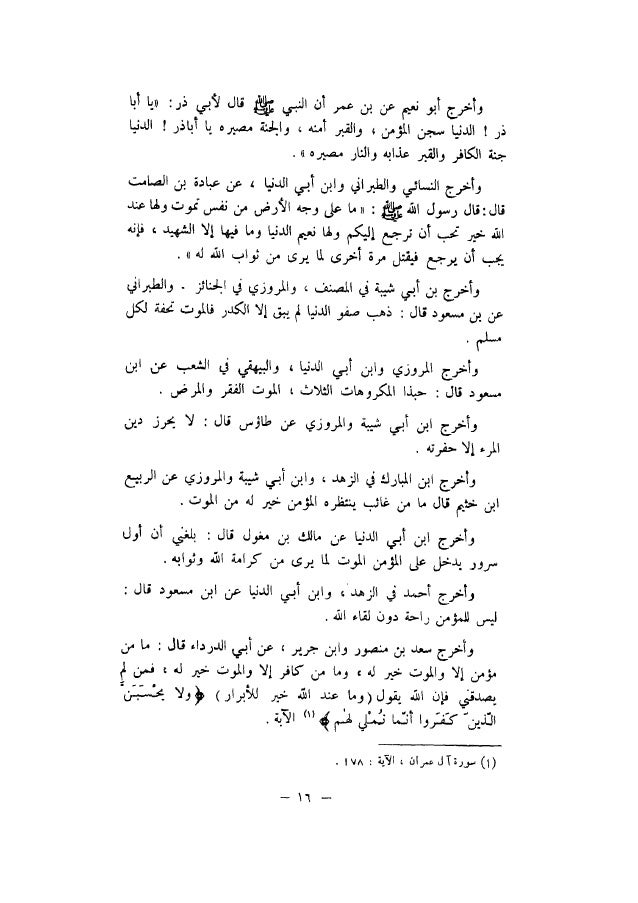 وأخرج أبو نعيم عن بن عمر أن النبي ﷺ قال لأبي ذر : «يا أبا
ذر ! الدنيا سجن المؤمن ، والقبر أمنه ، والجنة مصيره يا أباذر ! الدنيا
جنة الكافر والقبر عذابه والنار مصيره » .
وأخرج النسائي والطبراني وابن أبي الدنيا ، عن عبادة بن الصامت
قال : قال رسول الله ﷺ : « ما على وجه الأرض من نفس تموت ولها عند
الله خير تحب أن ترجع إليكم ولها نعيم الدنيا وما فيها إلا الشهيد ، فإنه
يحب أن يرجع فيقتل مرة أخرى لما يرى من ثواب الله له » .
وأخرج بن أبي شيبة في المصنف ، والمروزي في الجنائز . والطبراني
عن بن مسعود قال : ذهب صفو الدنيا لم يبق إلا الكدر فالموت تحفة لكل
مسلم .
وأخرج المروزي وابن أبي الدنيا ، والبيهقي في الشعب عن ابن
مسعود قال : حبذا المكروهات الثلاث ، الموت الفقر والمرض .
وأخرج ابن أبي شيبة والمروزي عن طاؤس قال : لا يحرز دين
المرء إلا حفرته .
وأخرج ابن المبارك في الزهد ، وابن أبي شيبة والمروزي عن الربيع
ابن خثيم قال ما من غائب ينتظره المؤمن خير له من الموت .
وأخرج ابن أبي الدنيا عن مالك بن مغول قال : بلغني أن أول
سرور يدخل على المؤمن الموت لما يرى من كرامة الله وثوابه .
وأخرج أحمد في الزهد ، وابن أبي الدنيا عن ابن مسعود قال :
ليس للمؤمن راحة دون لقاء الله .
وأخرج سعد بن منصور وابن جرير ، عن أبي الدرداء قال : ما من
مؤمن إلا والموت خير له ، وما من كافر إلا والموت خير له ، فمن لم
يصدقني فإن الله يقول ( وما عند الله خير للأبرار ) ﴿ ولا يَحْسَبَنَّ
الَّذِينَ كَفَرُوا أنَّما نُمْلي لهُم ﴾ (١) الآية .
(١) سورة آل عمران ، الآية : ١٧٨ .
— ١٦ —